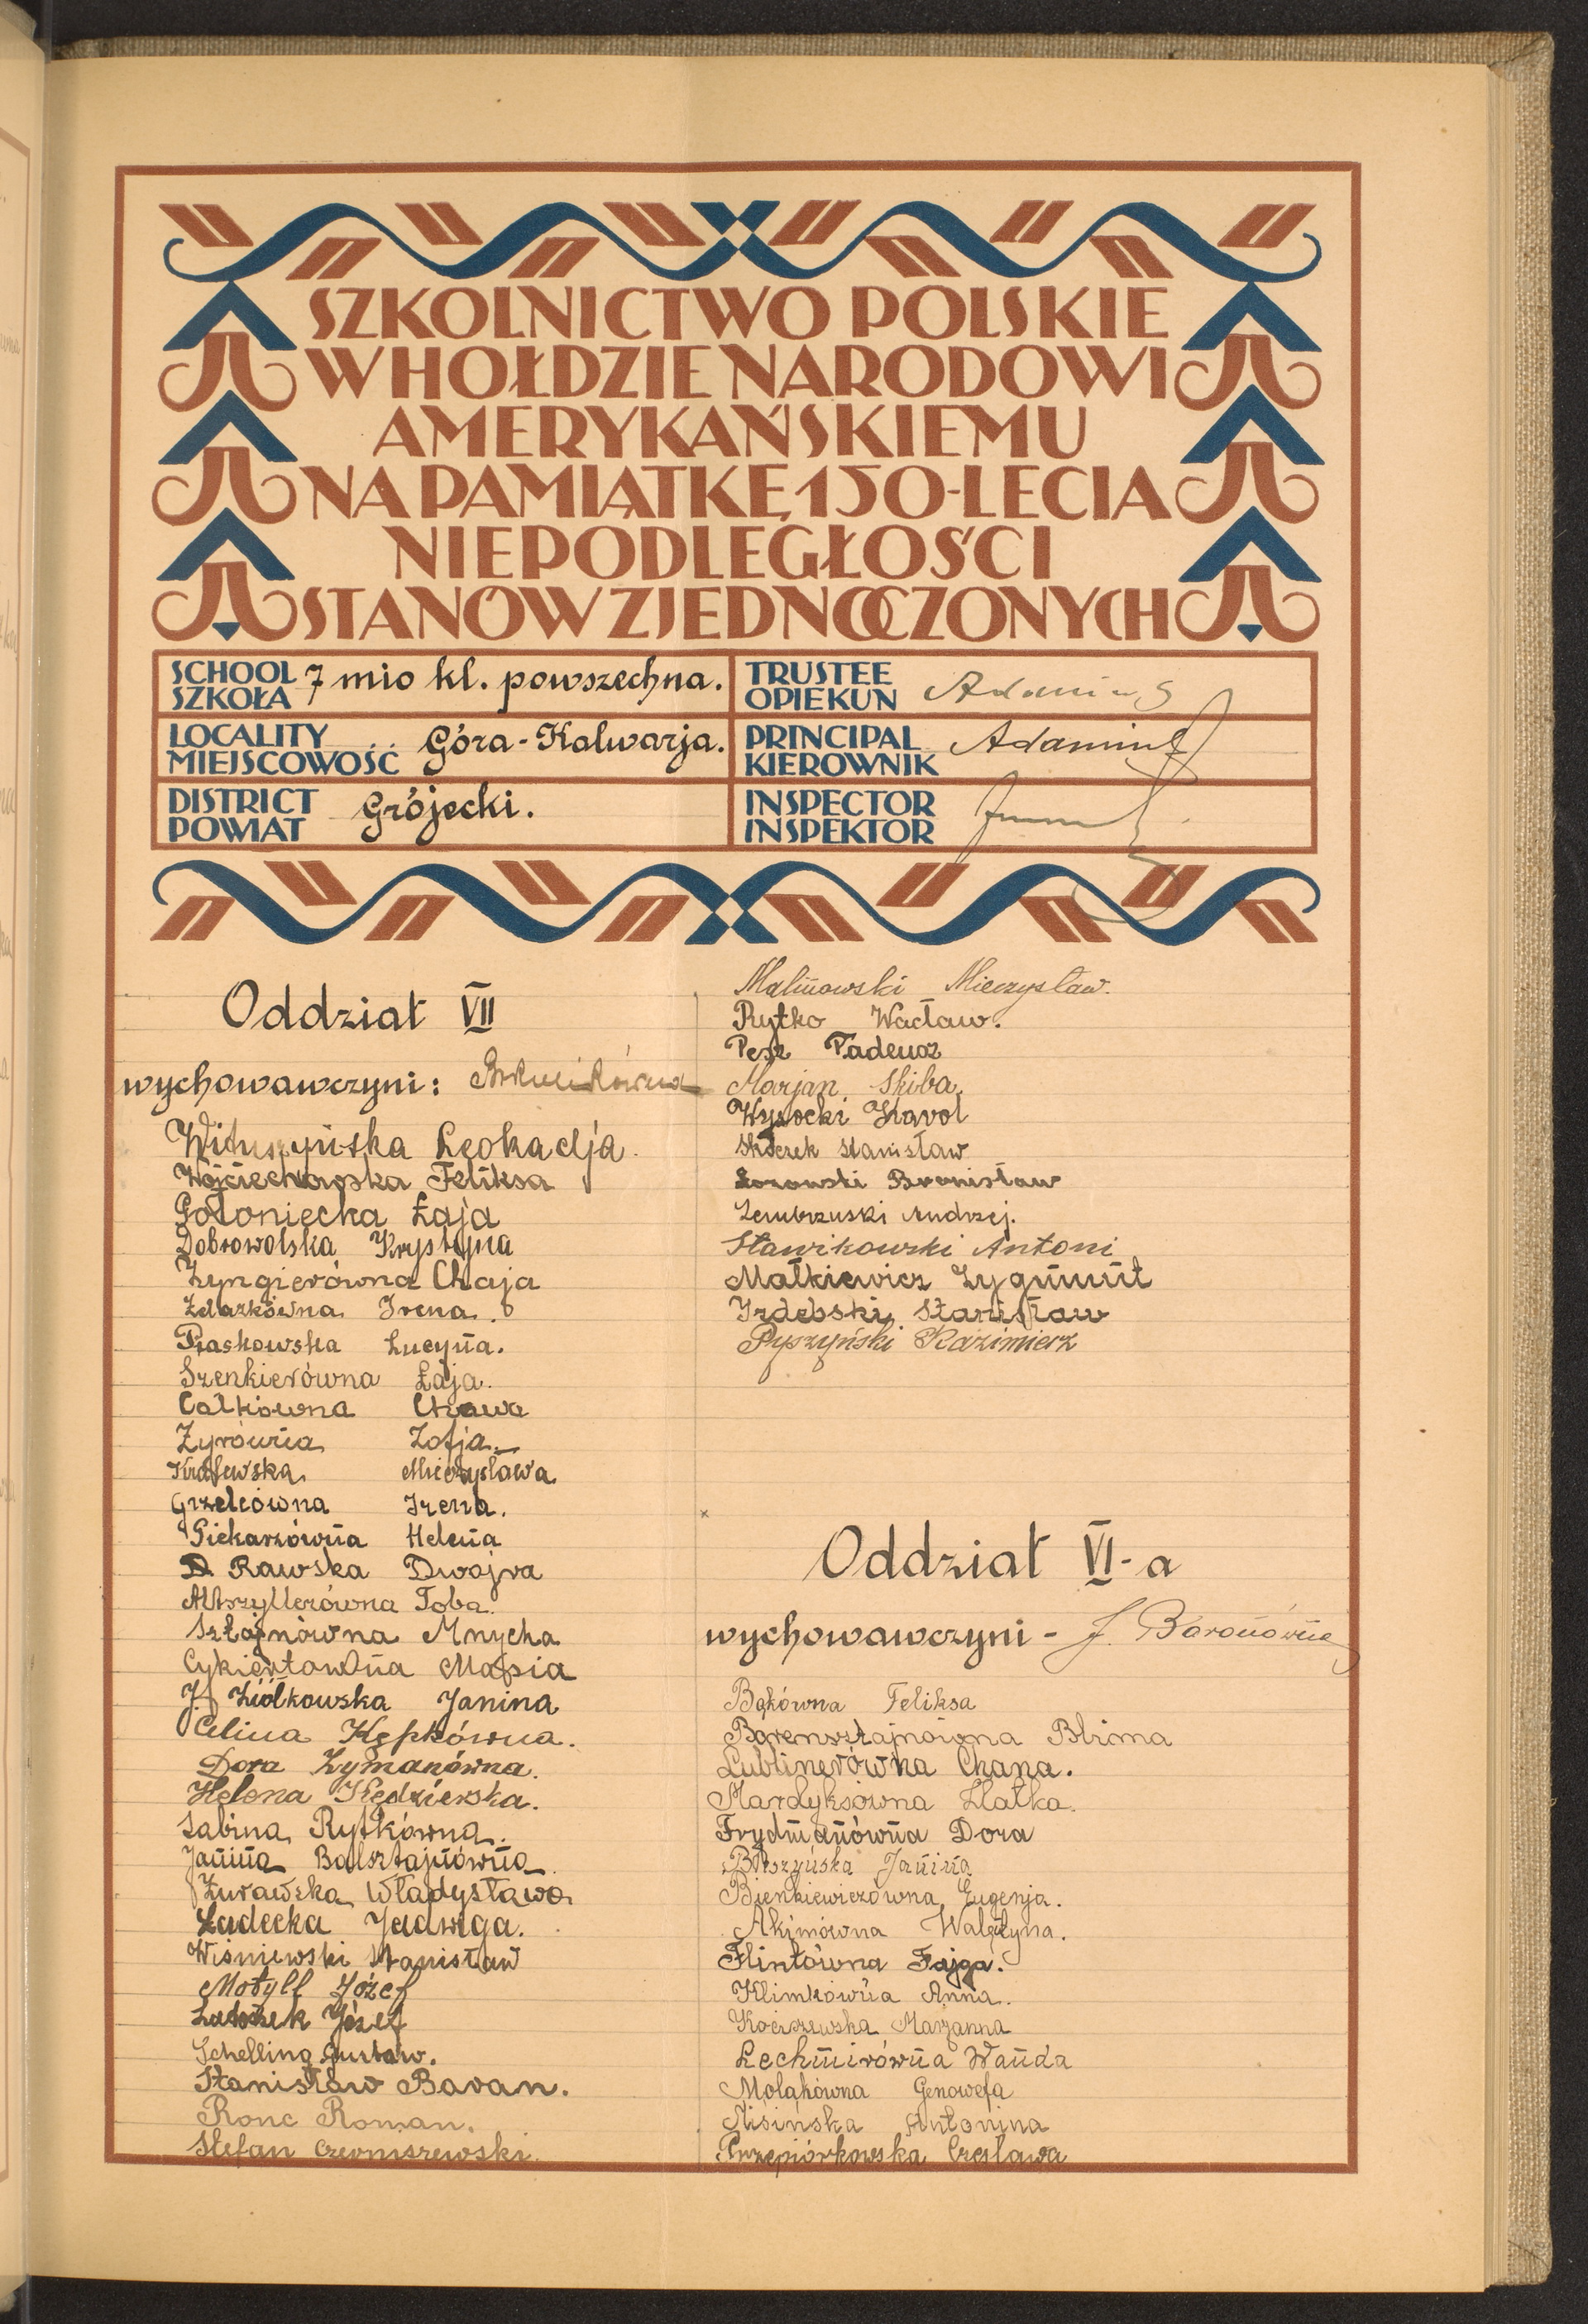 SZKOLNICTWO POLSKIE
W HOŁDZIE NARODOWI
AMERYKAŃSKIEMU
NA PAMIĄTKĘ 150-LECIA
NIEPODLEGŁOŚCI
STANÓW ZJEDNOCZONYCH
SCHOOL
SZKOŁA
7 mio kl. powszechna.
TRUSTEE
OPIEKUN
LOCALITY
MIEJSCOWOŚĆ
Góra-Kalwarja.
PRINCIPAL
KIEROWNIK
DISTRICT
POWIAT
Grójecki.
INSPECTOR
INSPEKTOR
Oddział VII
wychowawczyni:
Leokadja
Wojciechowska Feliksa
Połoniecka Łaja
Dobrowolska Krystyna
Zyngierówna Chaja
Żelazkówna Irena.
Piaskowska Lucyna.
Szenkierówna Łaja.
Całkówna Chawa
Żyrówna Zofja.
Krajewska Mieczysława
Grzelcówna Irena.
Piekarzówna Helena
Rawska Dwojra
Altszyllerówna Toba.
Sztajnówna Mnycha
Cykiertówna Masia
J. Ziółkowska Janina
Celina Kępkówna.
Dora Zymanówna.
Helena Kędzierska.
Sabina Rytkówna.
Janina Balsztajnówna.
Żurawska Władysława
Ładecka Jadwiga.
Wiśniewski Stanisław
Motyll Józef
Józef
Schelling Gustaw.
Stanisław Baran.
Ronc Roman.
Stefan Czerniszewski.
Malinowski Mieczysław.
Rytko Wacław.
Pesz Tadeusz
Marjan Skiba.
Wysocki Karol
Skoczek Stanisław
Łozowski Bronisław
Zembrzuski Andrzej.
Sławikowski Antoni
Małkiewicz Zygmunt
Izdebski Stanisław
Pyszyński Kazimierz
Oddział VI-a
wychowawczyni - J. Baronówna
Bąkówna Feliksa
Borensztajnówna Blima
Lublinerówna Chana.
Mardyksówna Złatka.
Frydmanówna Dora
Janina
Bienkiewiczówna Eugenja.
Akimówna Walętyna.
Flintówna Fajga.
Klimkówna Anna.
Kociszewska Marjanna
Lechmirówna Wanda
Molakówna Genowefa
Nisińska Antonina
Przepiórkowska Czesława